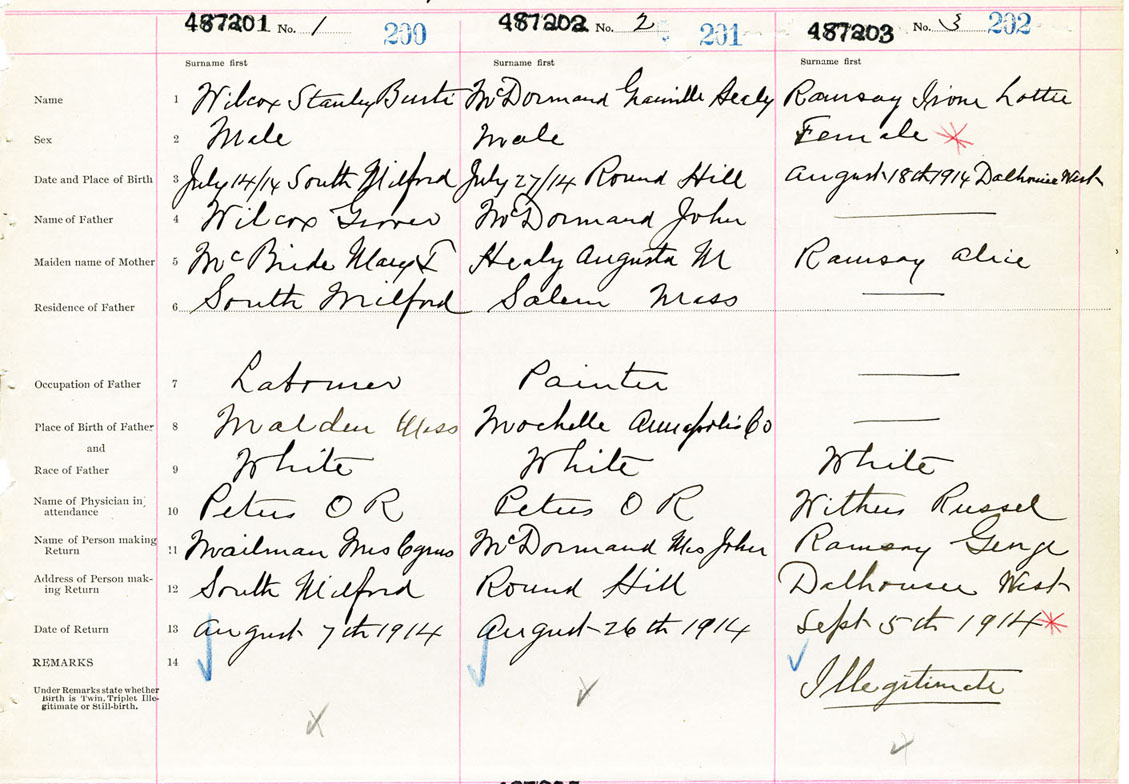 487201 No. 1 200 487202 No. 2 201 487203 No. 3 202
Surname first Surname first Surname first
Name 1 Wilcox Stanley McDormand Granville Healy Ramsay Irone Lottie
Sex 2 Male Male Female *
Date and Place of Birth 3 July 14/14 South Milford July 27/14 Round Hill August 18th 1914 Dalhousie West
Name of Father 4 Wilcox Grover McDormand John
Maiden name of Mother 5 McBride Mary Healy Augusta M Ramsay Alice
Residence of Father 6 South Milford Salem Mass
Occupation of Father 7 Labourer Painter
Place of Birth of Father 8 Malden Mass Mochelle Annapolis Co
and
Race of Father 9 White White White
Name of Physician in attendance 10 Peters O R Peters O R Withers Russel
Name of Person making Return 11 Mailman Mrs Cyrus McDormand Mrs John Ramsay George
Address of Person making Return 12 South Milford Round Hill Dalhousie West
Date of Return 13 August 7th 1914 August 26th 1914 Sept 5th 1914 *
REMARKS 14 Illegitimate
Under Remarks state whether
Birth is Twin, Triplet Ille-
gitimate or Still-birth.